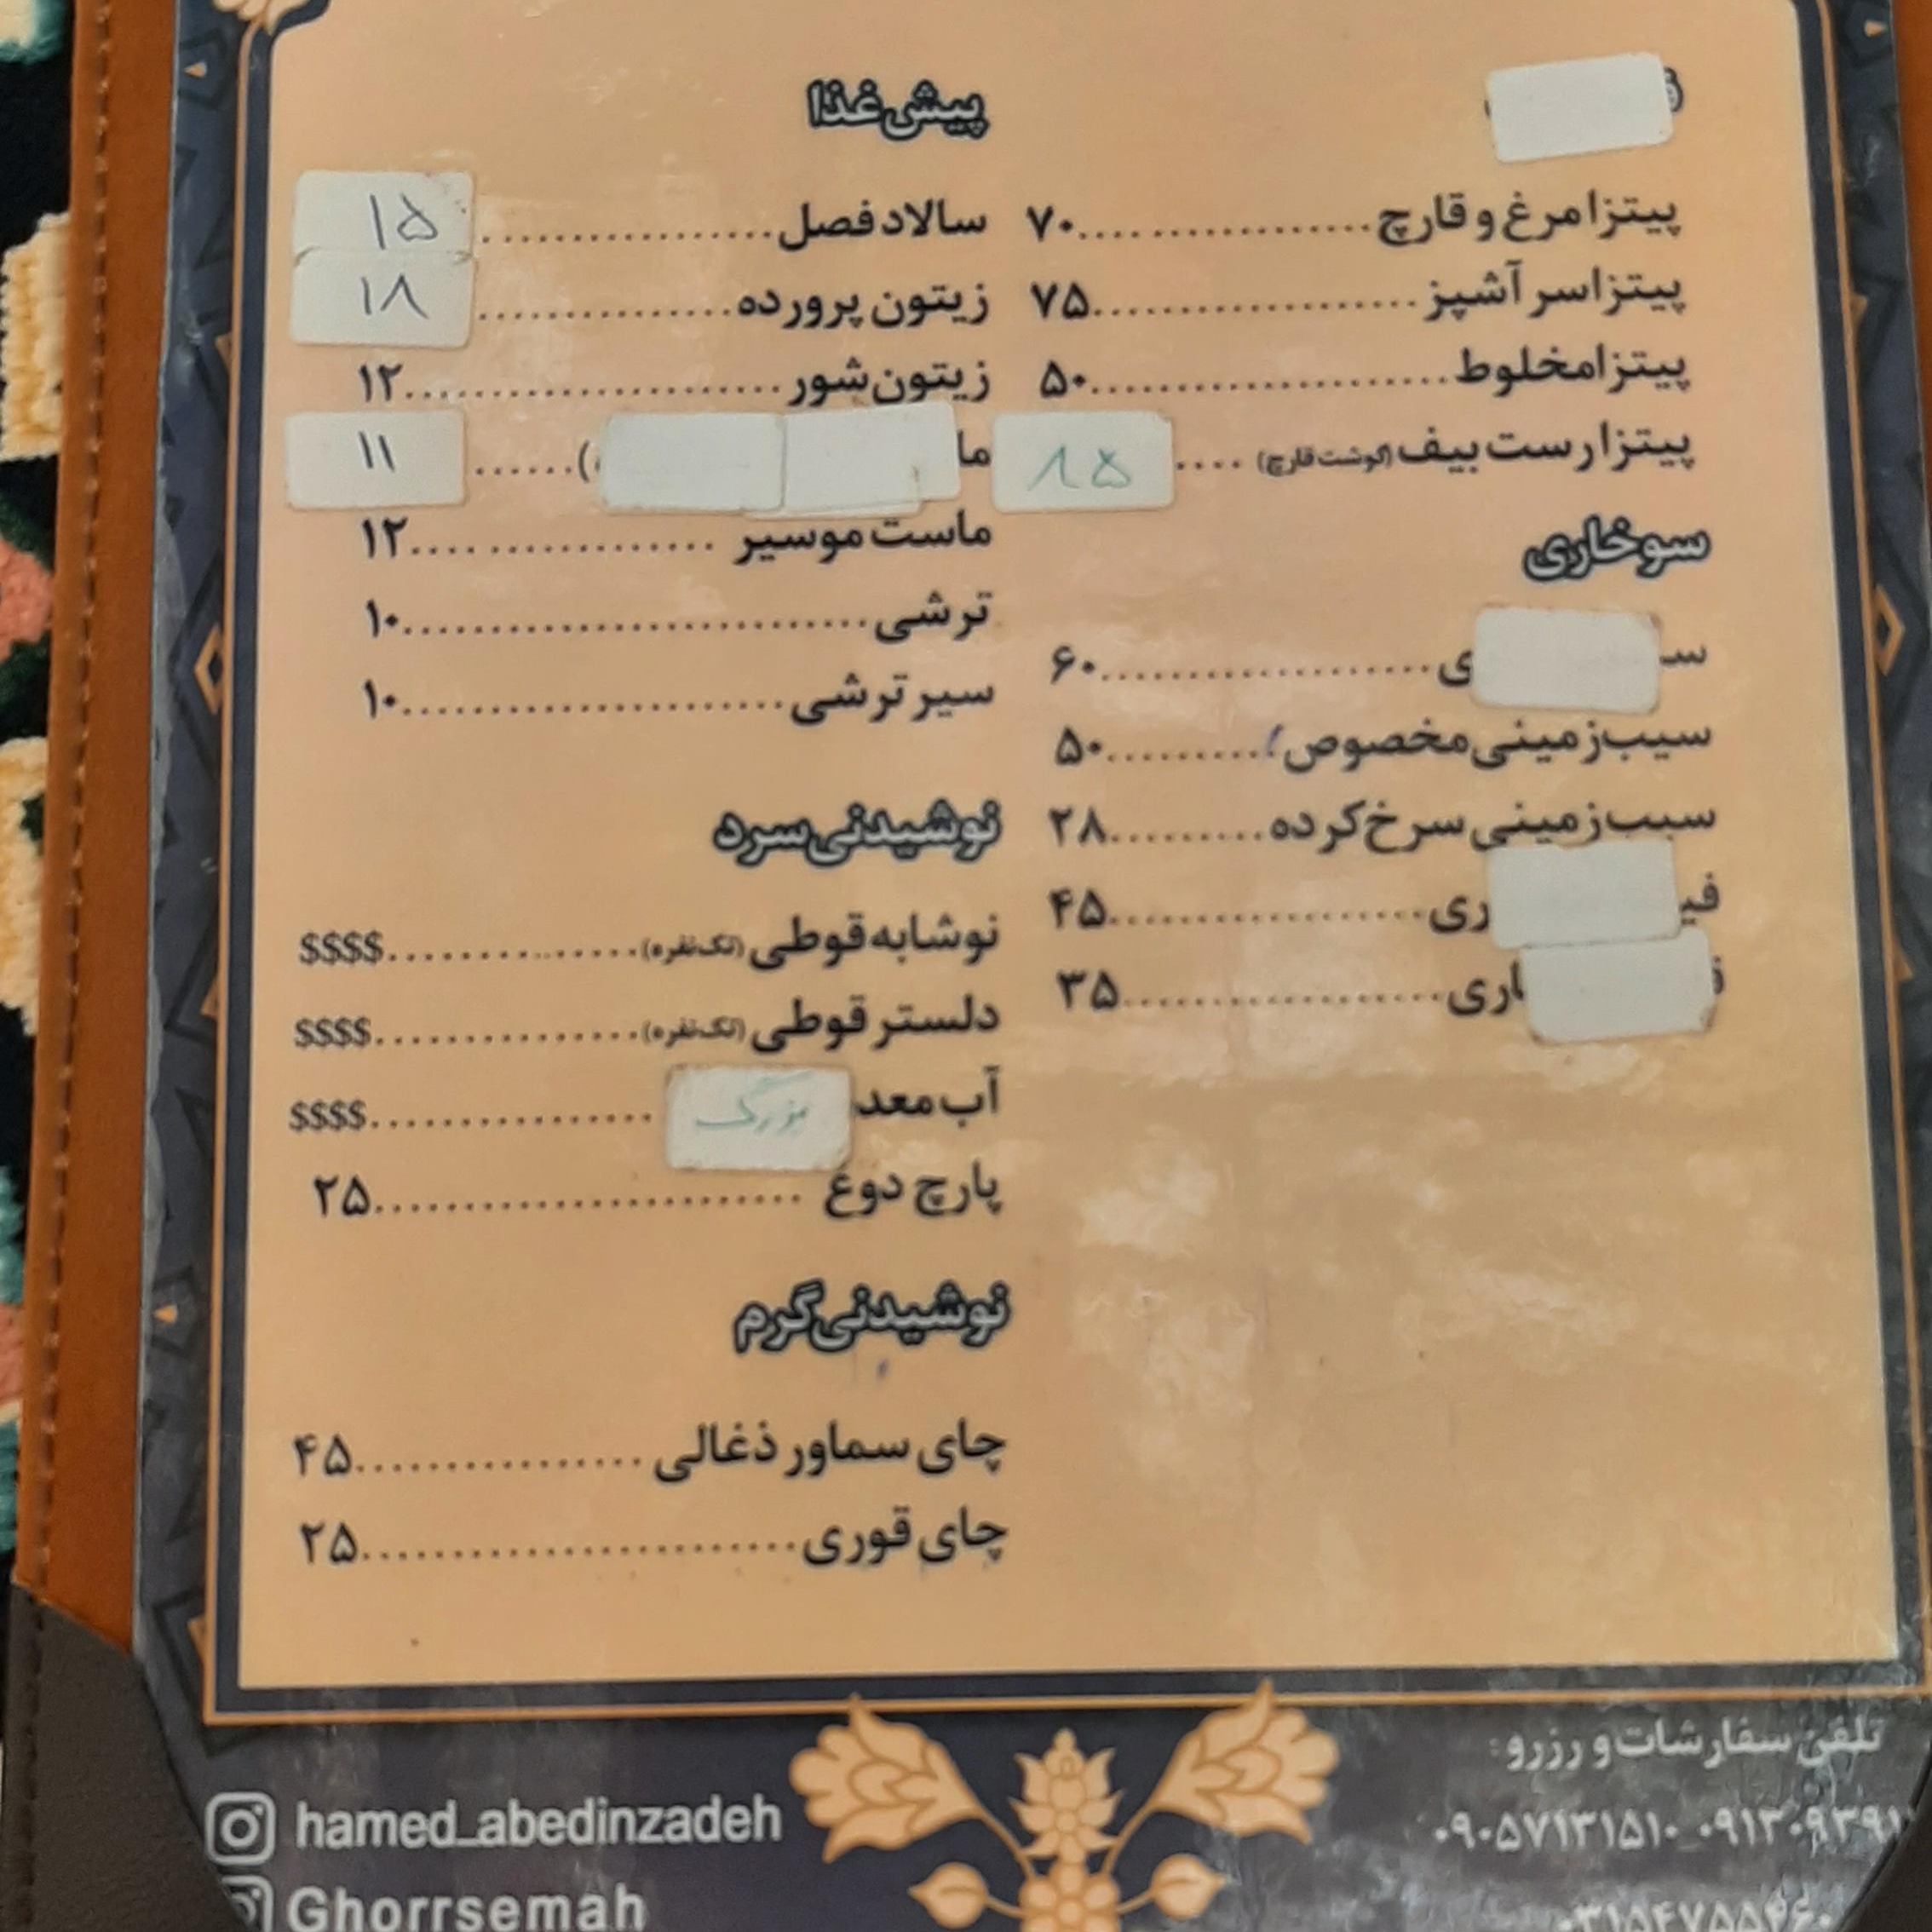 پیتزا مرغ و قارچ ۷۰
پیتزا سر آشپز ۷۵
پیتزا مخلوط ۵۰
پیتزا رست بیف (گوشت قارچ) ۸۵
سوخاری
۶۰
سیب زمینی مخصوص ۵۰
سبب زمینی سرخ کرده ۲۸
۴۵
۳۵
پیش غذا
سالاد فصل ۱۵
زیتون پرورده ۱۸
زیتون شور ۱۲
۱۱
ماست موسیر ۱۲
ترشی ۱۰
سیر ترشی ۱۰
نوشیدنی سرد
نوشابه قوطی (تک نفره) $$$$
دلستر قوطی (تک نفره) $$$$
آب معد بزرگ $$$$
پارچ دوغ ۲۵
نوشیدنی گرم
چای سماور ذغالی ۴۵
چای قوری ۲۵
تلفن سفارشات و رزرو:
۰۹۰۵۷۱۳۱۵۱۰
hamed_abedinzadeh
Ghorrsemah